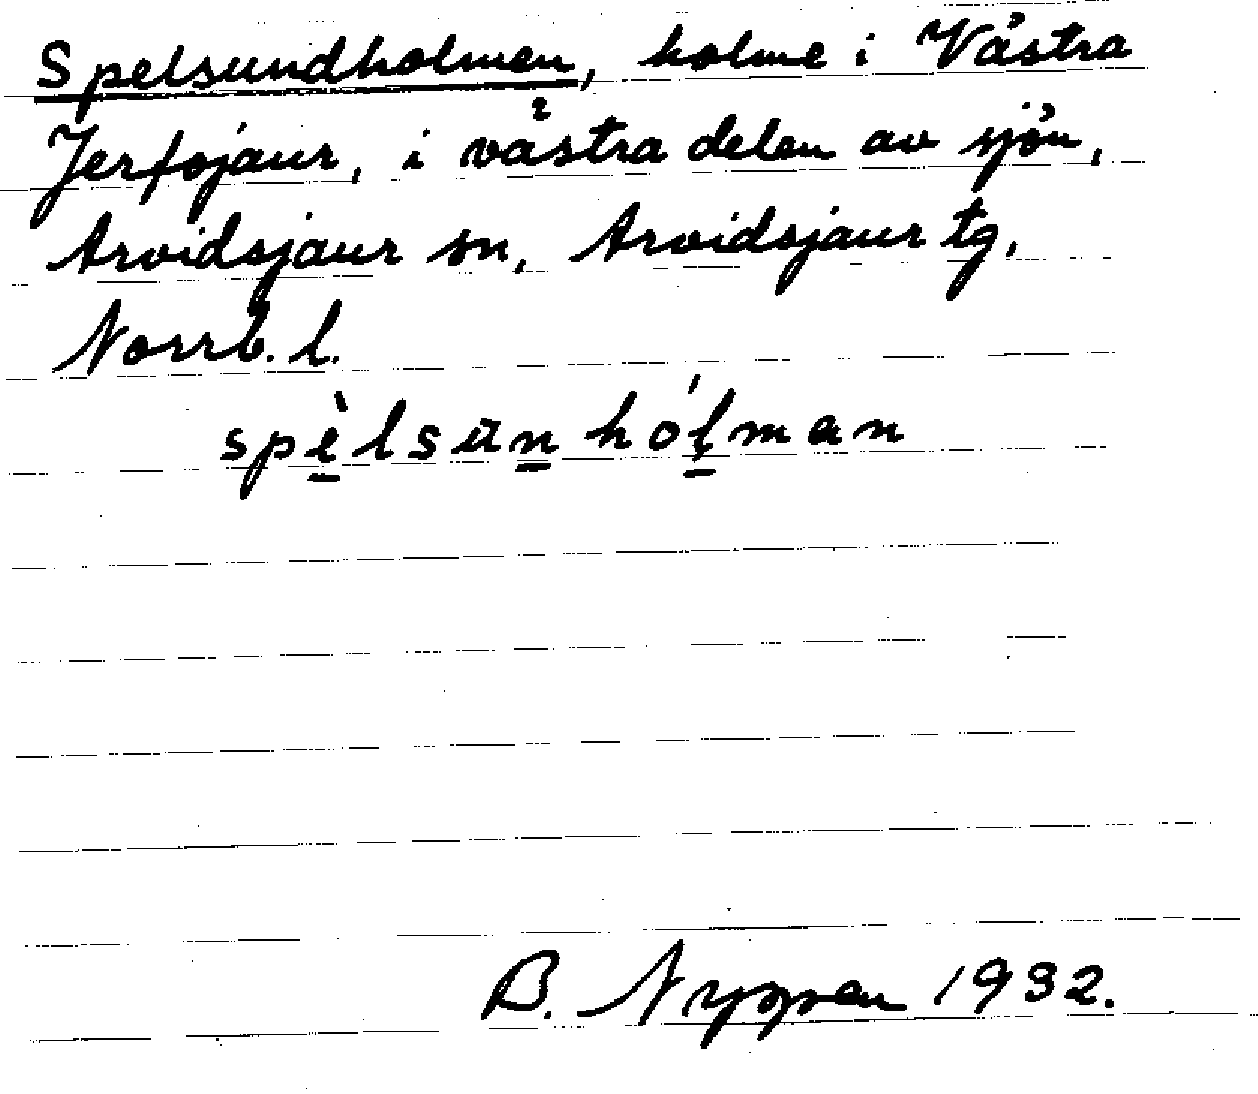 Spelsundholmen, holme i Västra
Jerfojaur, i västra delen av sjön,
Arvidsjaur sn, Arvidsjaur tg,
Norrb. l.
spèlsūn hólman
B. Nyppen 1932.